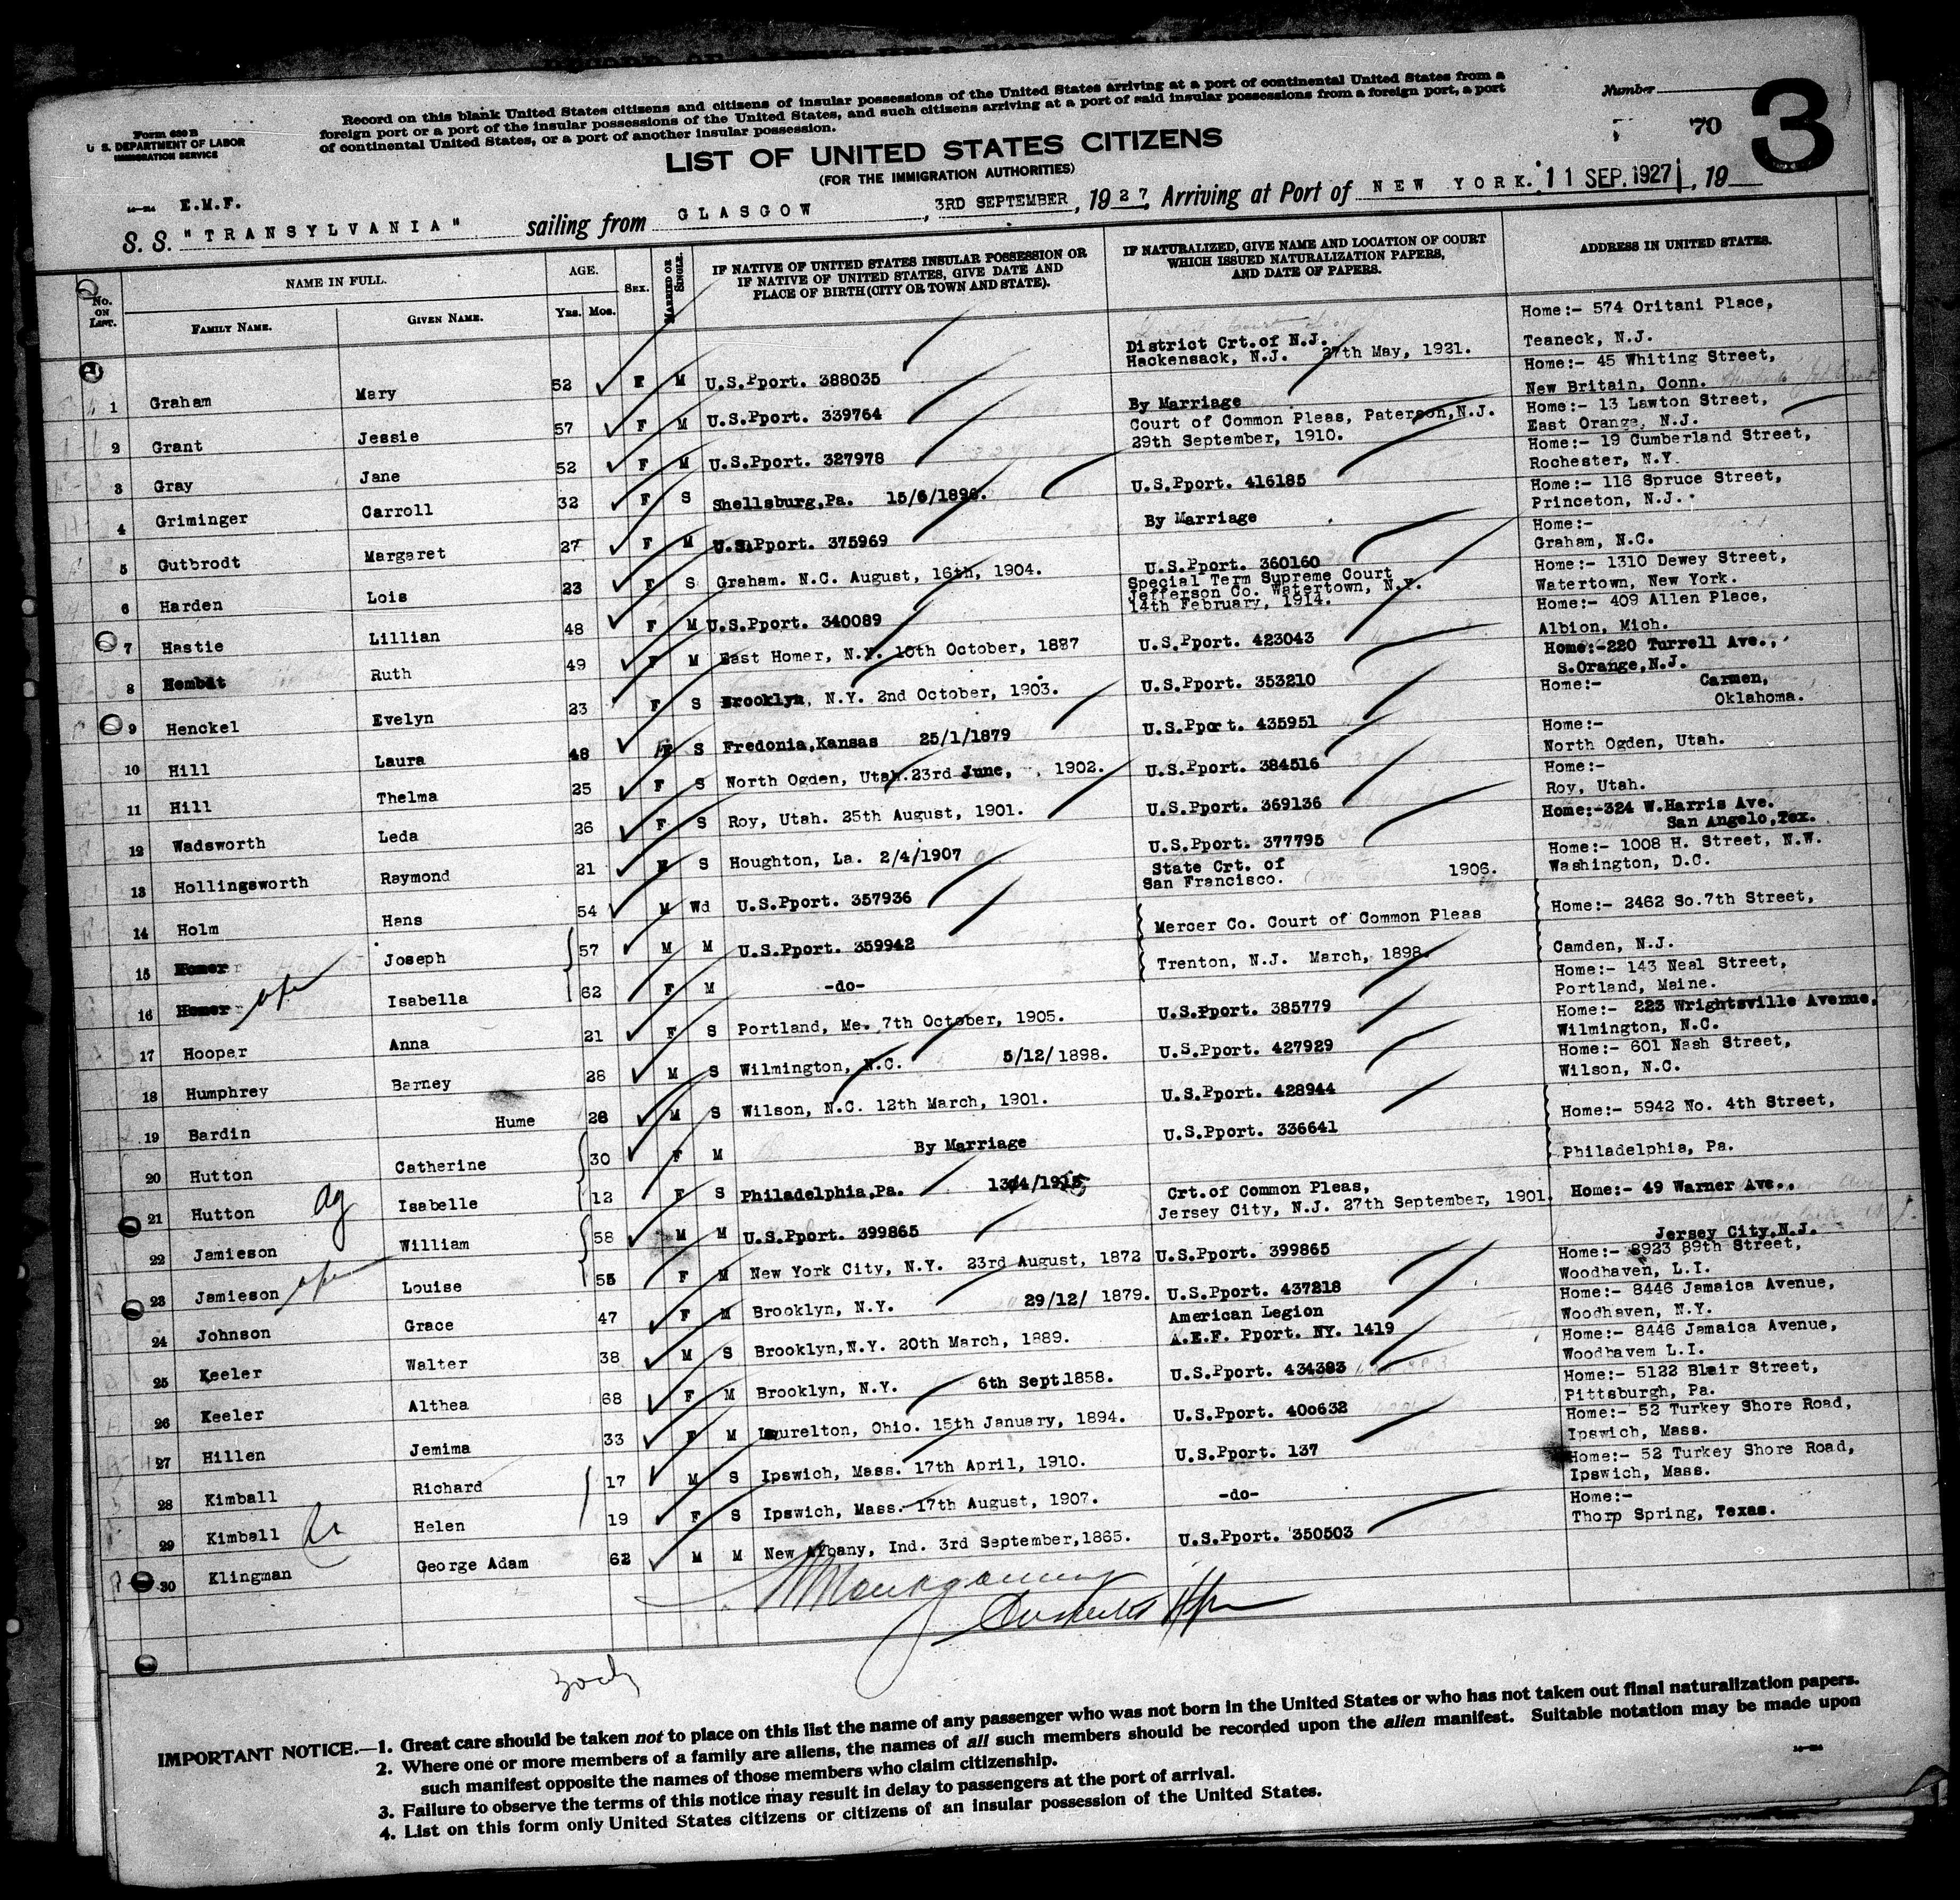 Form 630 B
U. S. DEPARTMENT OF LABOR
IMMIGRATION SERVICE
Record on this blank United States citizens and citizens of insular possessions of the United States arriving at a port of continental United States from a
foreign port or a port of the insular possessions of the United States, and such citizens arriving at a port of said insular possessions from a foreign port, a port
of continental United States, or a port of another insular possession.
Number
70
3
LIST OF UNITED STATES CITIZENS
(FOR THE IMMIGRATION AUTHORITIES)
E.M.F.
S. S. "TRANSYLVANIA" sailing from GLASGOW, 3RD SEPTEMBER, 1927, Arriving at Port of NEW YORK. 11 SEP. 1927, 19
No. ON LIST. NAME IN FULL. AGE. SEX. MARRIED OR SINGLE. IF NATIVE OF UNITED STATES INSULAR POSSESSION OR IF NATIVE OF UNITED STATES, GIVE DATE AND PLACE OF BIRTH (CITY OR TOWN AND STATE). IF NATURALIZED, GIVE NAME AND LOCATION OF COURT WHICH ISSUED NATURALIZATION PAPERS, AND DATE OF PAPERS. ADDRESS IN UNITED STATES.
FAMILY NAME. GIVEN NAME. Yrs. Mos.
1 Graham Mary 52 F M U.S.Pport. 388035 District Crt.of N.J. Hackensack, N.J. 27th May, 1921. Home:- 574 Oritani Place, Teaneck, N.J.
2 Grant Jessie 57 F M U.S.Pport. 339764 By Marriage Home:- 45 Whiting Street, New Britain, Conn.
3 Gray Jane 52 F M U.S.Pport. 327978 Court of Common Pleas, Paterson,N.J. 29th September, 1910. Home:- 13 Lawton Street, East Orange, N.J.
4 Griminger Carroll 32 F S Shellsburg,Pa. 15/6/1896. U.S.Pport. 416185 Home:- 19 Cumberland Street, Rochester, N.Y.
5 Gutbrodt Margaret 27 F M U.S.Pport. 375969 By Marriage Home:- 116 Spruce Street, Princeton, N.J.
6 Harden Lois 23 F S Graham. N.C. August, 16th, 1904. U.S.Pport. 360160 Home:- Graham, N.C.
7 Hastie Lillian 48 F M U.S.Pport. 340089 Special Term Supreme Court Jefferson Co. Watertown, N.Y. 14th February, 1914. Home:- 1310 Dewey Street, Watertown, New York.
8 Hembdt Ruth 49 F M East Homer, N.Y. 10th October, 1887 U.S.Pport. 423043 Home:- 409 Allen Place, Albion, Mich.
9 Henckel Evelyn 23 F S Brooklyn, N.Y. 2nd October, 1903. U.S.Pport. 353210 Home:-220 Turrell Ave., S.Orange,N.J.
10 Hill Laura 48 F S Fredonia,Kansas 25/1/1879 U.S.Pport. 435951 Home:- Carmen, Oklahoma.
11 Hill Thelma 25 F S North Ogden, Utah.23rd June, 1902. U.S.Pport. 384516 Home:- North Ogden, Utah.
12 Wadsworth Leda 26 F S Roy, Utah. 25th August, 1901. U.S.Pport. 369136 Home:- Roy, Utah.
13 Hollingsworth Raymond 21 M S Houghton, La. 2/4/1907 U.S.Pport. 377795 Home:-324 W.Harris Ave. San Angelo,Tex.
14 Holm Hans 54 M Wd U.S.Pport. 357936 State Crt. of San Francisco. 1906. Home:- 1008 H. Street, N.W. Washington, D.C.
15 Homer Joseph 57 M M U.S.Pport. 359942 Mercer Co. Court of Common Pleas Home:- 2462 So.7th Street,
16 Homer Isabella 62 F M -do- Trenton, N.J. March, 1898. Camden, N.J.
17 Hooper Anna 21 F S Portland, Me. 7th October, 1905. U.S.Pport. 385779 Home:- 143 Neal Street, Portland, Maine.
18 Humphrey Barney 28 M S Wilmington, N.C. 5/12/1898. U.S.Pport. 427929 Home:- 223 Wrightsville Avenue, Wilmington, N.C.
19 Bardin Hume 26 M S Wilson, N.C. 12th March, 1901. U.S.Pport. 428944 Home:- 601 Nash Street, Wilson, N.C.
20 Hutton Catherine 30 F M By Marriage U.S.Pport. 336641 Home:- 5942 No. 4th Street,
21 Hutton Isabelle 12 F S Philadelphia,Pa. Philadelphia, Pa.
22 Jamieson William 58 M M U.S.Pport. 399865 Crt.of Common Pleas, Jersey City, N.J. 27th September, 1901. Home:- 49 Warner Ave.,
23 Jamieson Louise 55 F M New York City, N.Y. 23rd August, 1872 U.S.Pport. 399865 Jersey City,N.J.
24 Johnson Grace 47 F M Brooklyn, N.Y. 29/12/ 1879. U.S.Pport. 437218 Home:- 8923 89th Street, Woodhaven, L.I.
25 Keeler Walter 38 M S Brooklyn,N.Y. 20th March, 1889. American Legion A.E.F. Pport. NY. 1419 Home:- 8446 Jamaica Avenue, Woodhaven, N.Y.
26 Keeler Althea 68 F M Brooklyn, N.Y. 6th Sept1858. U.S.Pport. 434383 Home:- 8446 Jamaica Avenue, Woodhavem L.I.
27 Hillen Jemima 33 F M Laurelton, Ohio. 15th January, 1894. U.S.Pport. 400632 Home:- 5122 Blair Street, Pittsburgh, Pa.
28 Kimball Richard 17 M S Ipswich, Mass. 17th April, 1910. U.S.Pport. 137 Home:- 52 Turkey Shore Road, Ipswich, Mass.
29 Kimball Helen 19 F S Ipswich, Mass. 17th August, 1907. -do- Home:- 52 Turkey Shore Road, Ipswich, Mass.
30 Klingman George Adam 62 M M New Albany, Ind. 3rd September,1865. U.S.Pport. 350503 Home:- Thorp Spring, Texas.
IMPORTANT NOTICE.—1. Great care should be taken not to place on this list the name of any passenger who was not born in the United States or who has not taken out final naturalization papers.
2. Where one or more members of a family are aliens, the names of all such members should be recorded upon the alien manifest. Suitable notation may be made upon
such manifest opposite the names of those members who claim citizenship.
3. Failure to observe the terms of this notice may result in delay to passengers at the port of arrival.
4. List on this form only United States citizens or citizens of an insular possession of the United States.